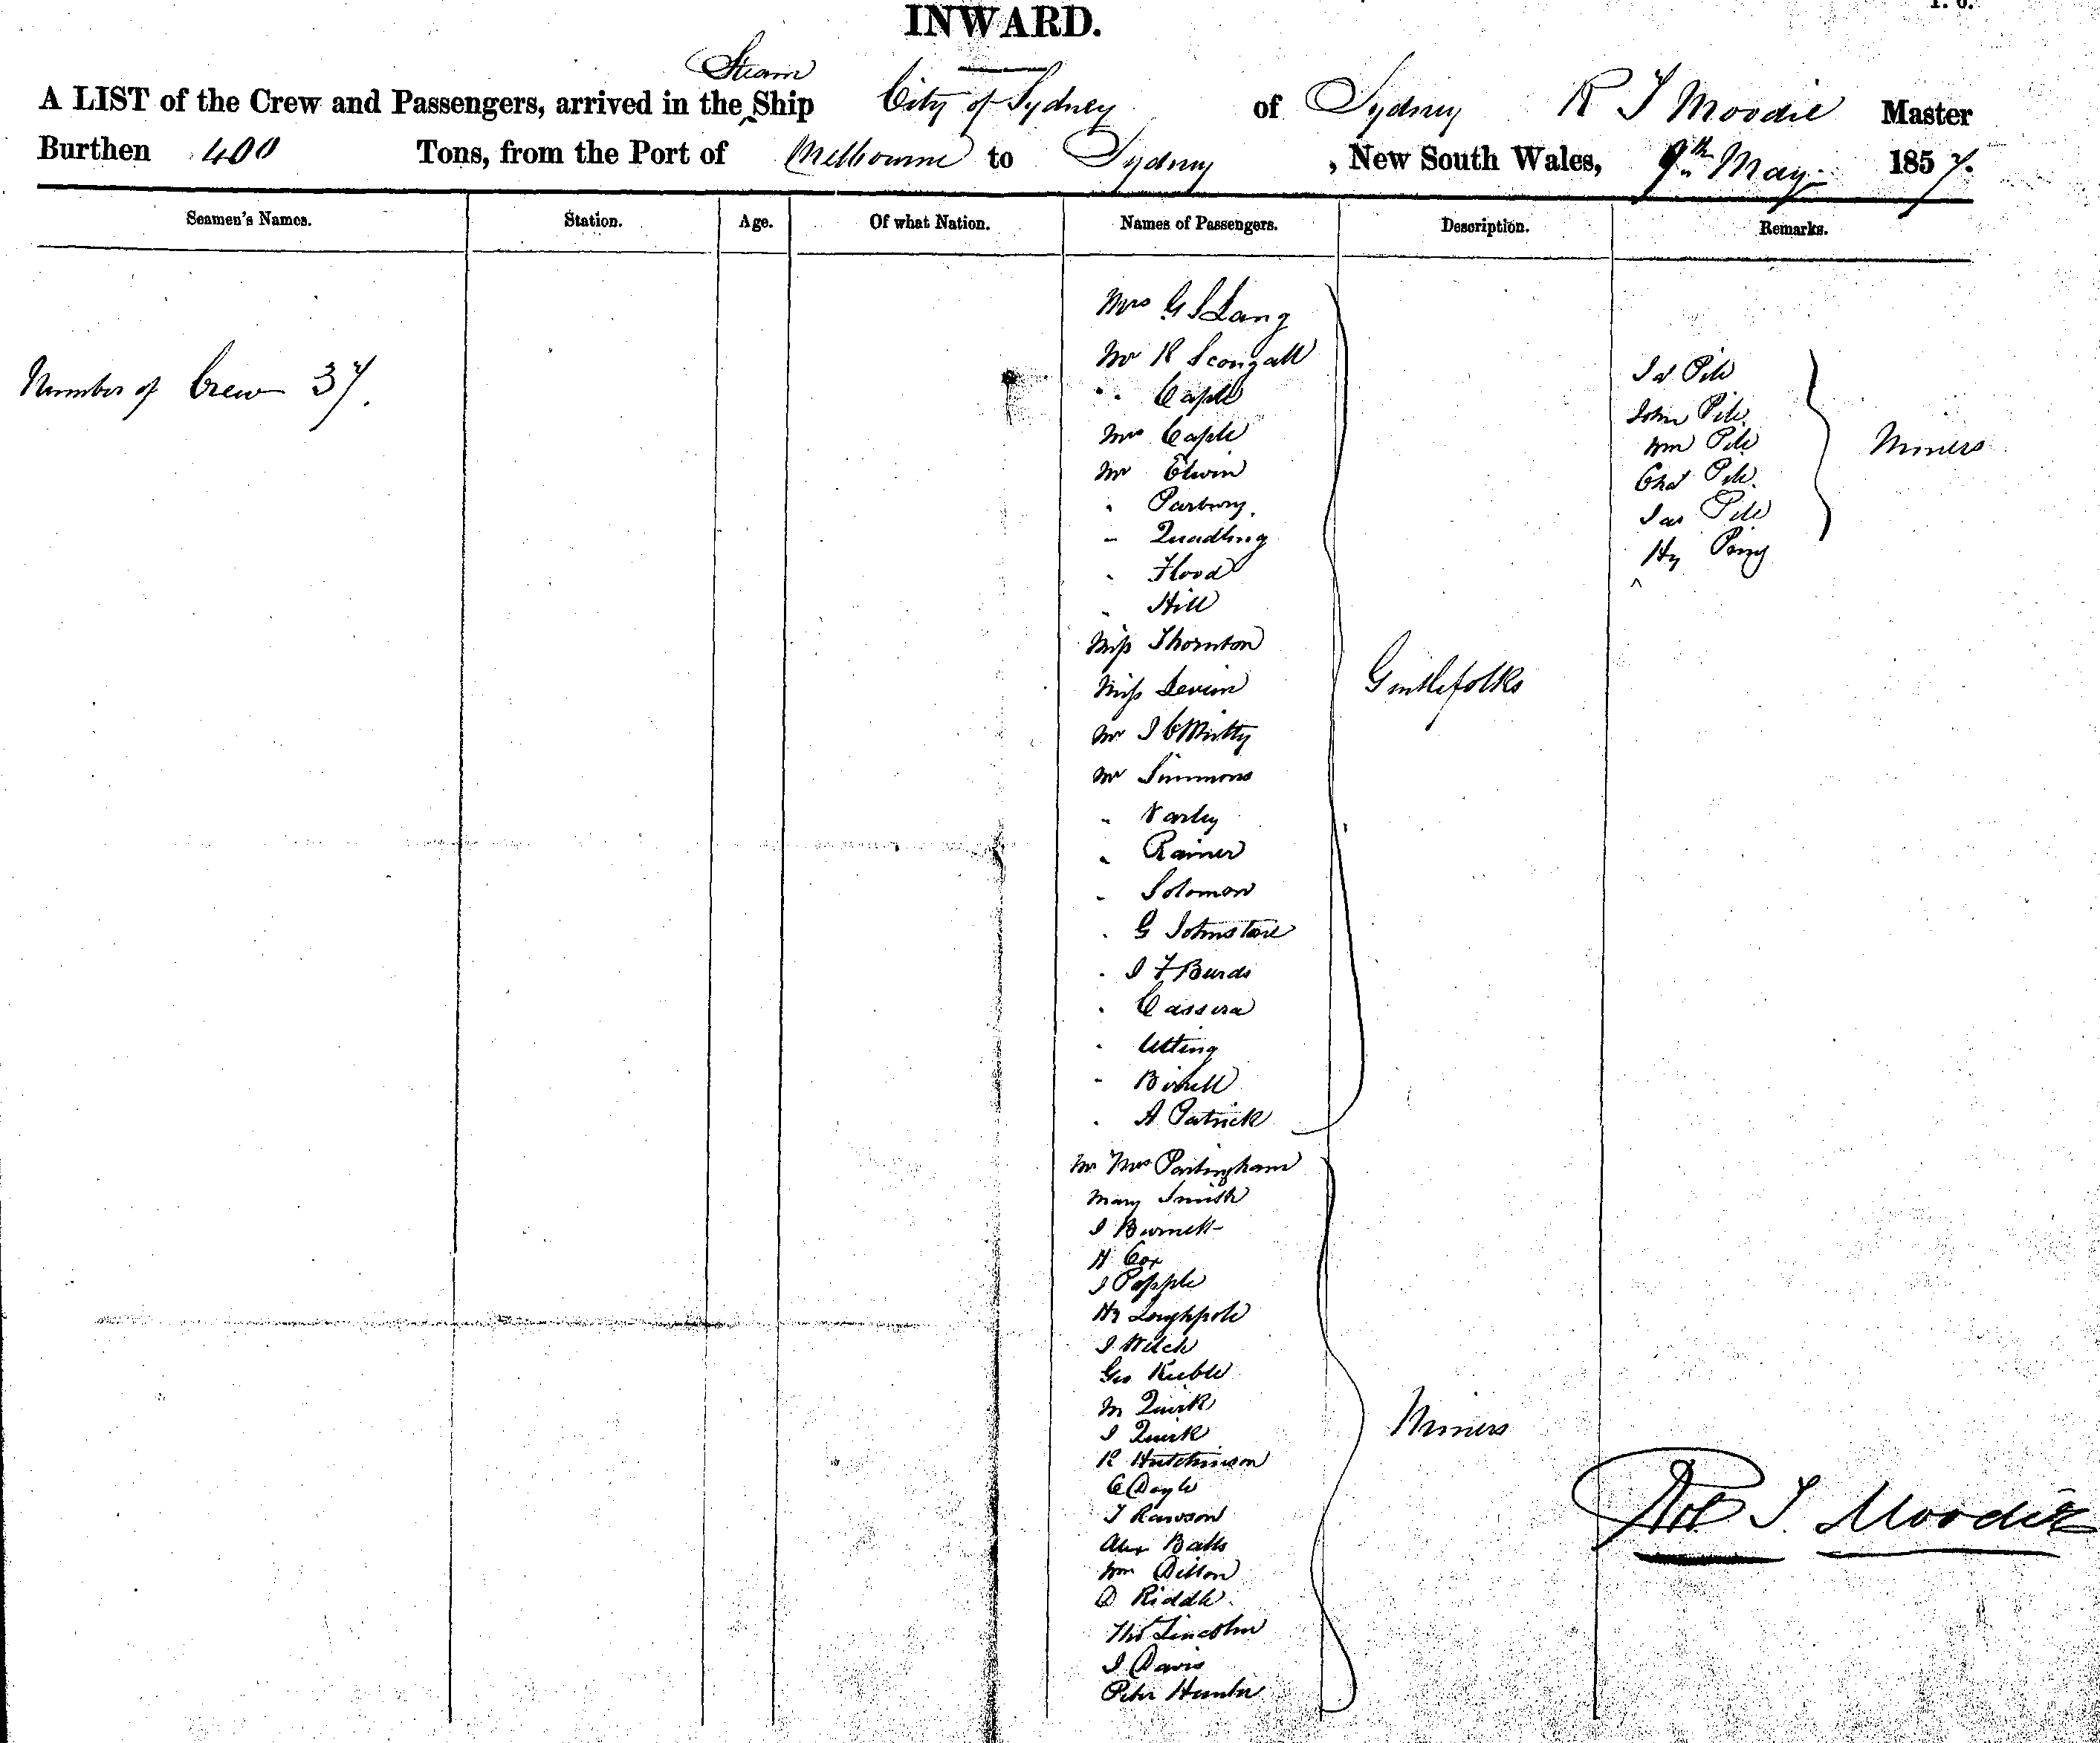 INWARD.
A LIST of the Crew and Passengers, arrived in the Steam Ship City of Sydney of Sydney R T Moodie Master
Burthen 400 Tons, from the Port of Melbourne to Sydney, New South Wales, 9th May 1857.
Seamen's Names. Station. Age. Of what Nation. Names of Passengers. Description. Remarks.
Number of Crew 37.
Mrs G S Lang
Mr R Scougall
" Caple
Mrs Caple
Mr Elwin
" Parbury.
" Quadling
" Flood
" Hill
Miss Thornton
Miss Levien
Mr J C Mitty
Mr Simmons
" Varley
" Rainer
" Solomon
" G Johnstone
" J F Burds
" Cassera
" Utting
" Birrell
" A Patrick
Gentlefolks
Mr Mrs Partingham
Mary Smith
J Burnett
H Cox
J Popple
Hy Loughpole
J Welch
Geo Keeble
M Quirk
J Quirk
R Hutchinson
C Doyle
T Rawson
Alex Balls
Wm Dillon
D Riddle
Thos Lincoln
J Davis
Peter Hunter
Miners
Jas Pile
John Pile
Wm Pile
Chas Pile
Jas Pile
Hy
Miners
Rob T. Moodie